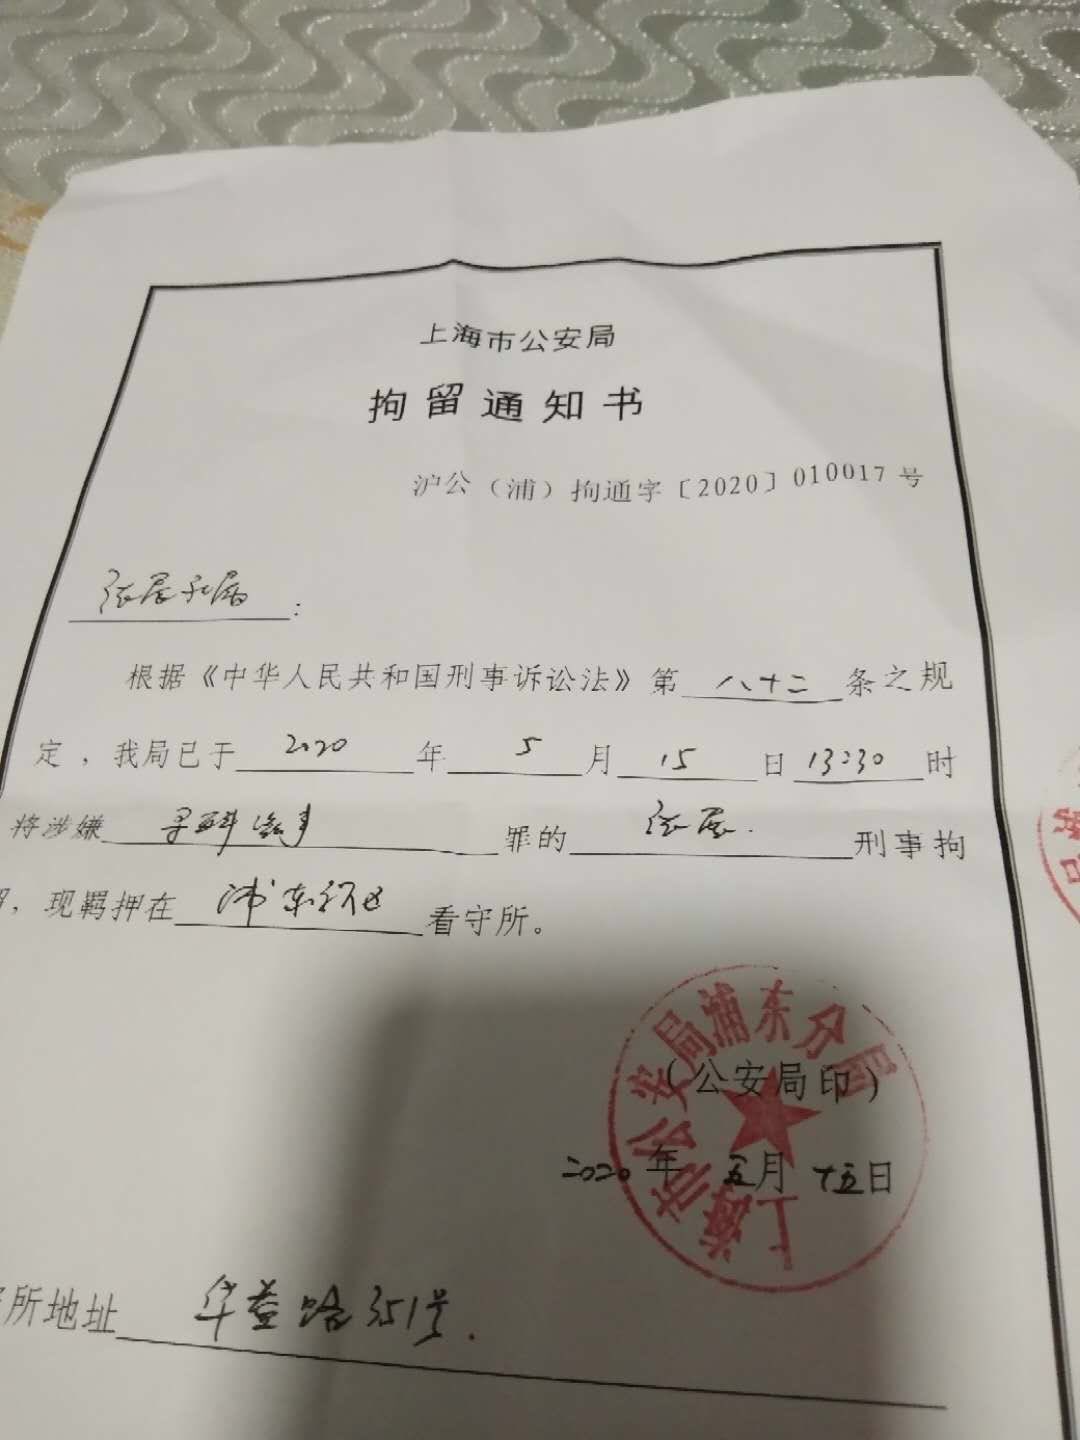 上海市公安局
拘留通知书
沪公（浦）拘通字〔2020〕010017号
张展家属：
根据《中华人民共和国刑事诉讼法》第八十二条之规
定，我局已于2020年5月15日13:30时
将涉嫌寻衅滋事罪的张展.刑事拘
，现羁押在浦东新区看守所。
上海市公安局浦东分局
（公安局印）
2020年五月十五日
所地址华益路351号.